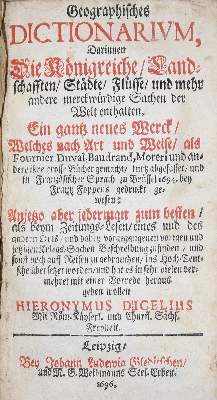 Geographisches
DICTIONARIUM,
Darinnen
Die Königreiche/ Land-
schafften/ Städte/ Flüsse/ und mehr
andere merckwürdige Sachen der
Welt enthalten,
Ein gantz neues Werck/
Welches nach Art und Weise/ als
Fournier Duval, Baudrand, Moreri und an-
dere ihre gross- Bücher gemacht/ kurtz abgefasset/ und
in Frantzösischer Sprach zu Brüssel 1694. bey
Frantz Foppens gedruckt ge-
wesen:
Anjetzo aber jederman zum besten/
als beym Zeitungs-Lesen/ eines und des
andern Orts/ und
jetzigen Kriegs-Sachen Beschreibung zu finden/ und
sonst noch auf Reisen zu gebrauchen/ ins Hoch-Teut-
sche übersetzet worden/ und hat es in sehr vielen ver-
mehret mit einer Vorrede heraus
geben wollen
HIERONYMUS DICELIUS
Mit Röm. Käyserl. und Churfl. Sächs.
Freyheit.
Leipzig/
Bey Johann Ludewig Gleditschen/
und M. G. Weidmanns Seel. Erben.
1696.